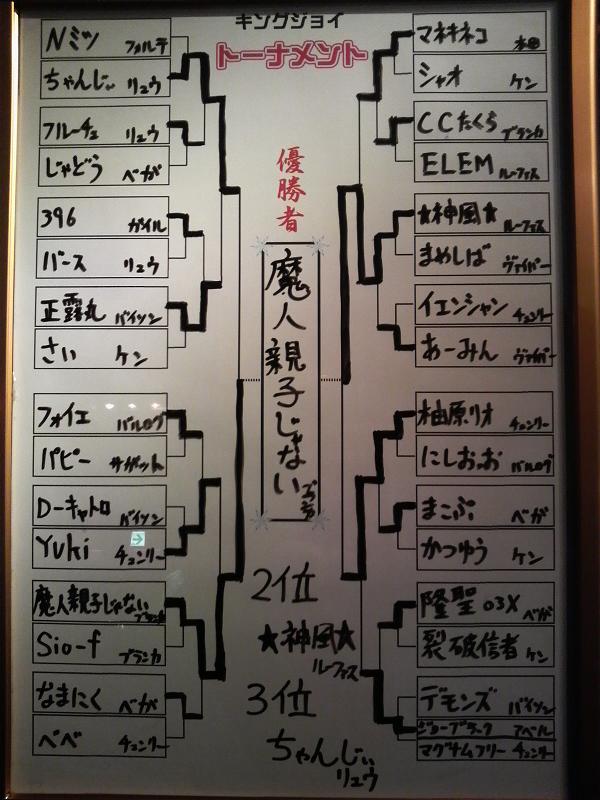 キングジョイ
トーナメント
優勝者
魔人親子じゃない
2位
★神風★
ルーファス
3位
ちゃんじぃ
リュウ
Nミツ フォルテ
ちゃんじぃ リュウ
フルーチェ リュウ
じゃどう ベガ
396 ガイル
バース リュウ
正露丸 バイソン
さい ケン
フォイエ バルログ
パピー サガット
D-キャトロ バイソン
Yuki チュンリー
魔人親子じゃない ブランカ
Sio-f ブランカ
なまにく ベガ
ペペ チュンリー
マネキネコ 本田
シャオ ケン
CCたくら ブランカ
ELEM ルーファス
★神風★ ルーファス
まめしば ヴァイパー
イエンシャン チュンリー
あーみん ヴァイパー
柚原リオ チュンリー
にしおっお バルログ
まこぷ ベガ
かつゆう ケン
隆聖03X ベガ
裂破信者 ケン
デモンズ バイソン
ジョーブラーク アベル
マグナムフリー チュンリー